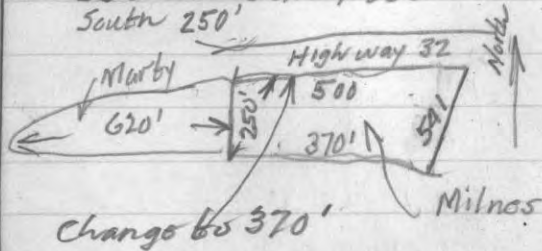 South 250'
Highway 32
North
Marty
500
620'
250'
370'
591
Milnes
Change to 370'